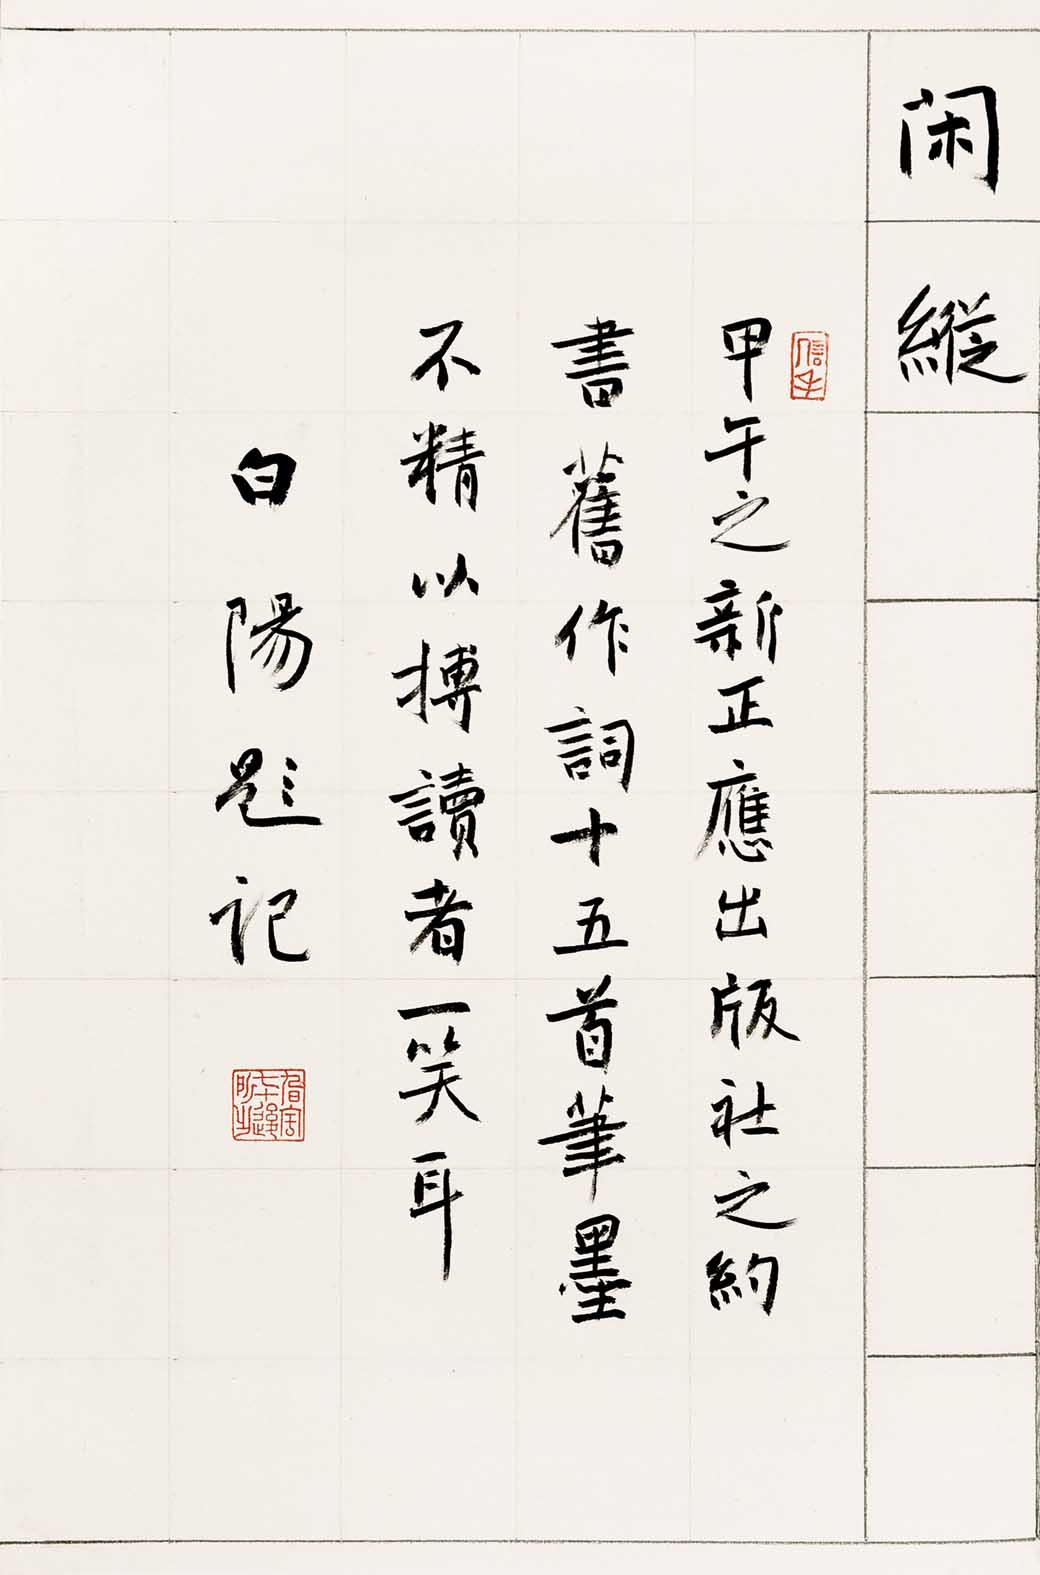 闲縱
甲午之新正應出版社之約
書舊作詞十五首筆墨
不精以搏讀者一笑耳
白陽題记
信手